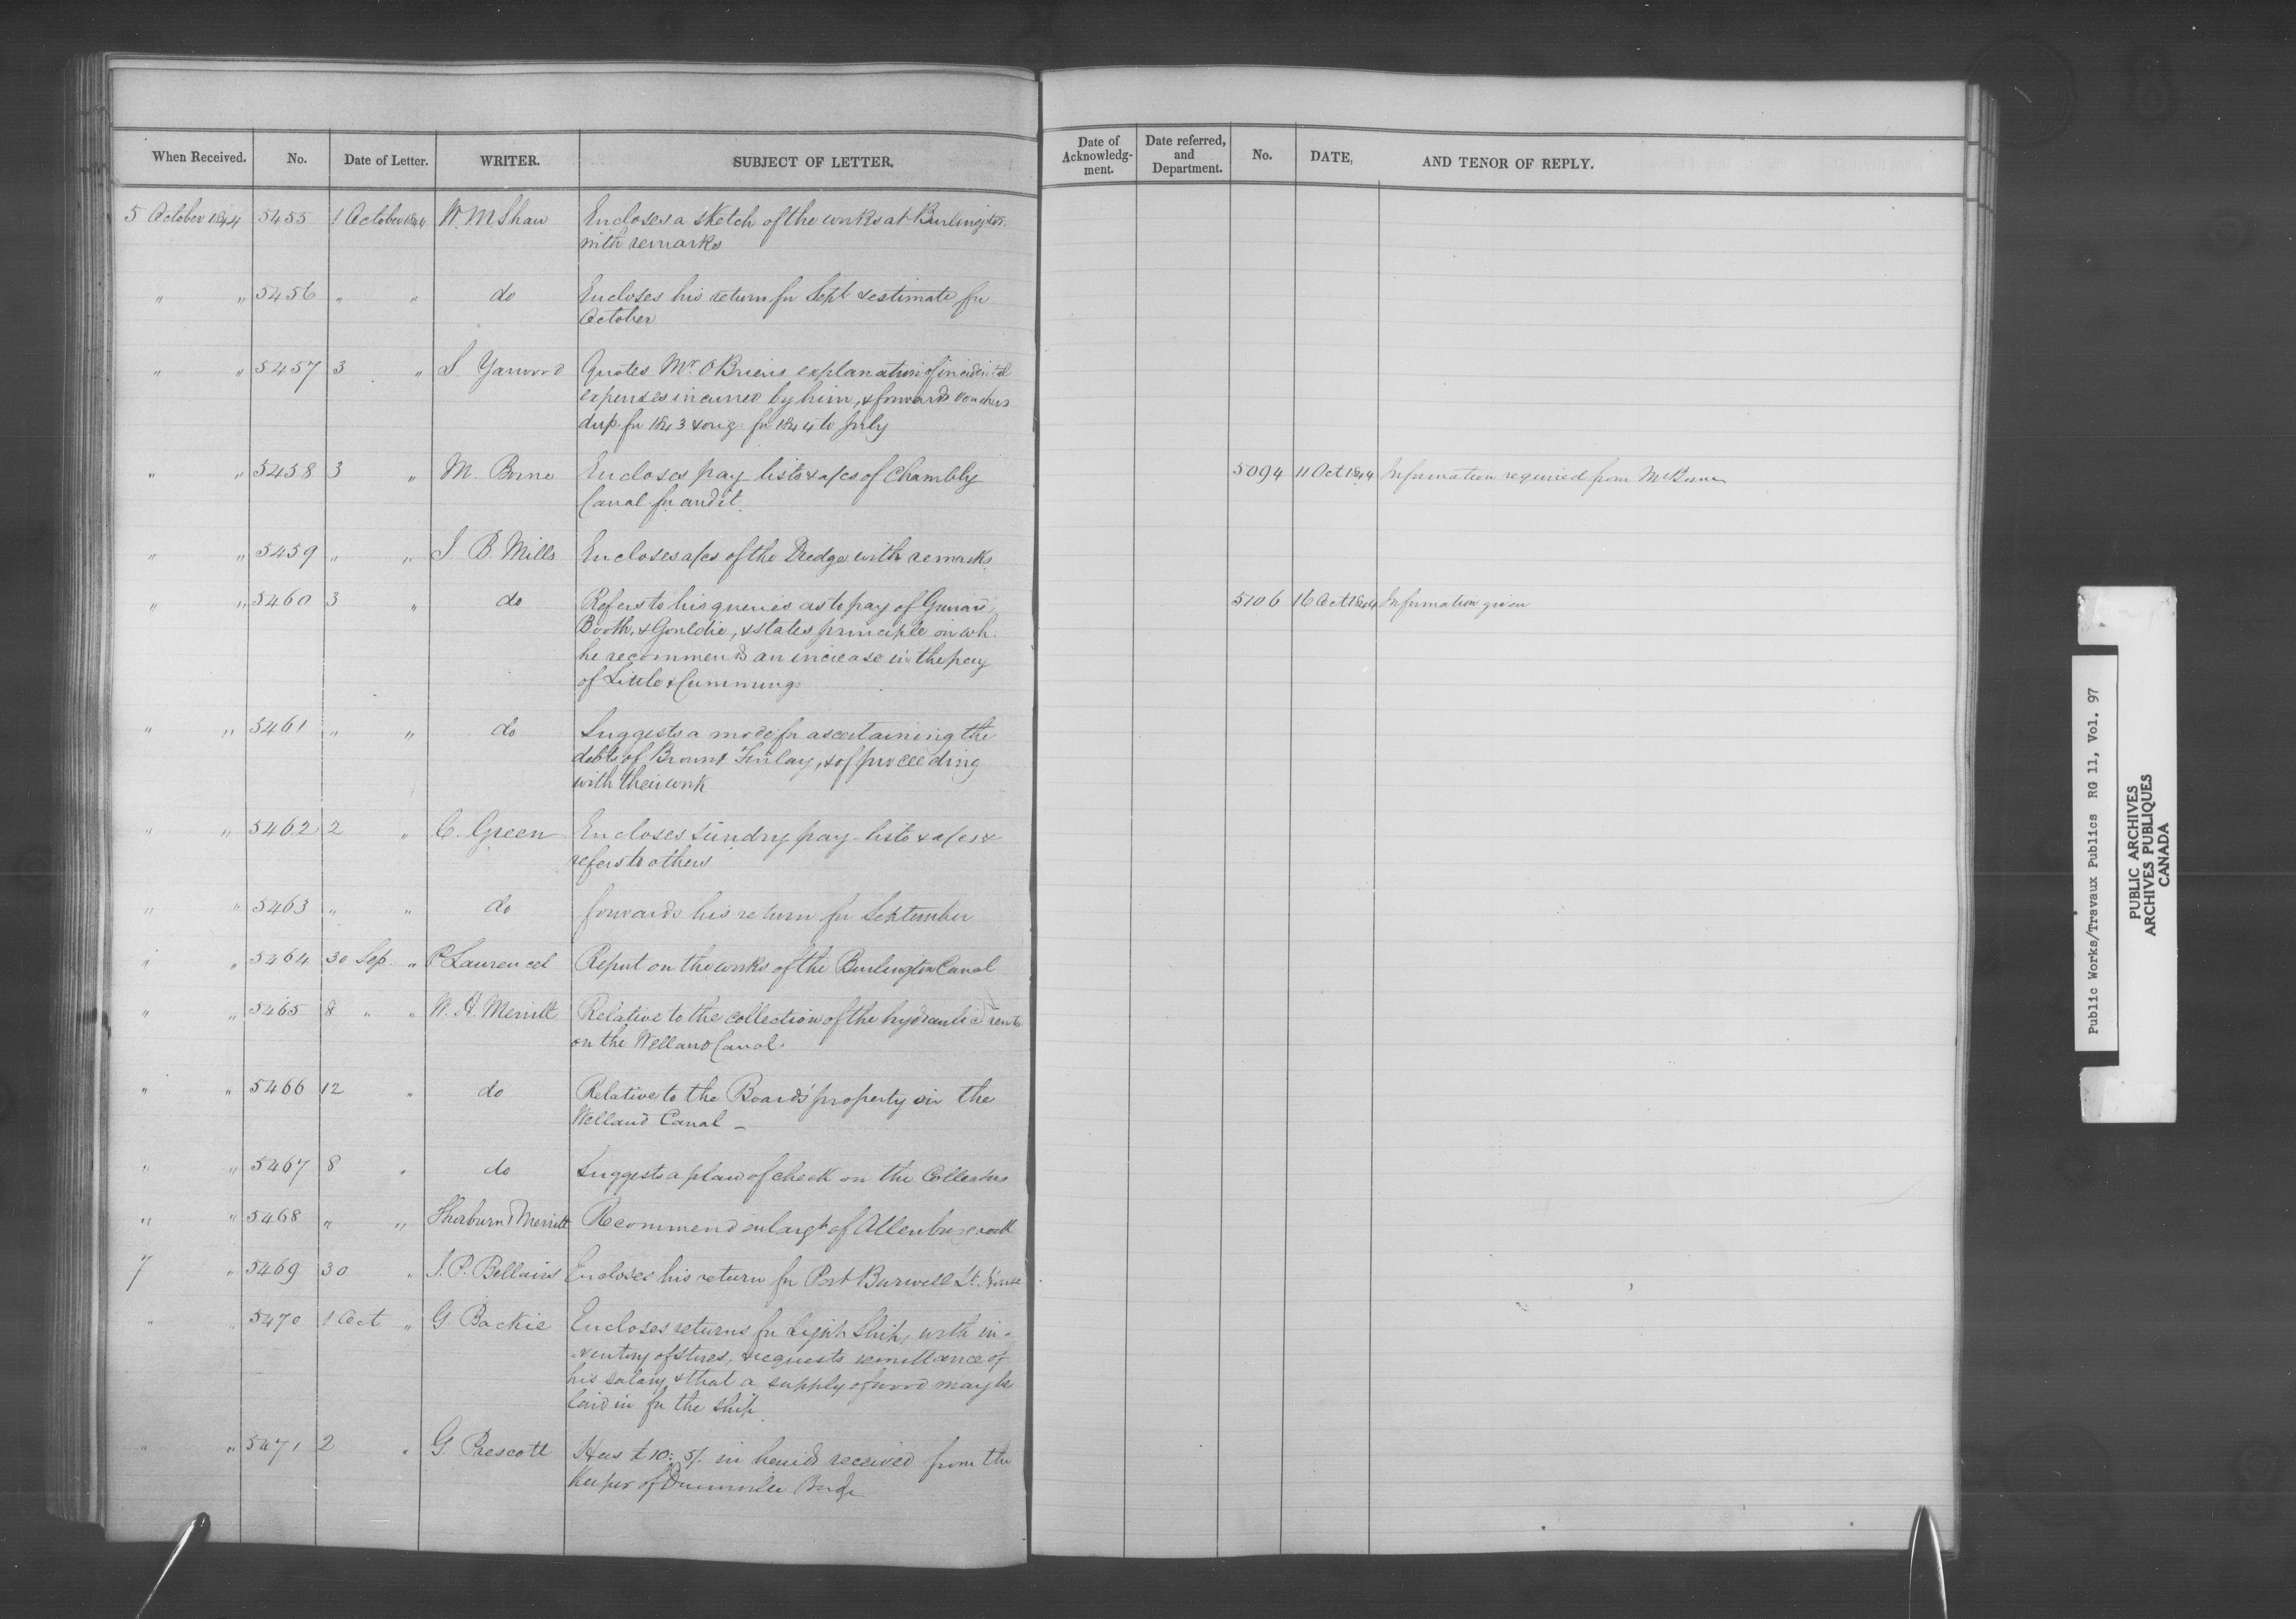 When Received. No. Date of Letter. WRITER. SUBJECT OF LETTER.
Date of Acknowledg-ment. Date referred, and Department. No. DATE, AND TENOR OF REPLY.
5 October 1844 5455 1 October 1844 W. M Shaw Encloses a sketch of the works at Burlington
with remarks
" " 5456 " " do Encloses his return for Sept & estimate for
October
" " 5457 3 " S Yarwood Quotes Mr. O Briens explanation of incidental
expenses incurred by him, & forwards vouchers
dup. for 1843 & orig. for 1844 to July
" " 5458 3 " M. Borne Encloses pay-lists & a/cs of Chambly 5094 11 Oct 1844 Information required from Mr
Canal for audit.
" " 5459 " " J B. Mills Encloses a/cs of the Dredge with remarks.
" " 5460 3 " do Refers to his queries as to pay of 5106 16 Oct 1844 Information given
Booth, & Gouldie, & states principle on wh.
he recommends an increase in the pay
of Little & Cummings
" " 5461 " " do Suggests a mode for ascertaining the
debts of Brown & Finlay, & of proceeding
with their work
" " 5462 2 " C. Green Encloses sundry pay-lists & a/cs &
refers to others
" " 5463 " " do forwards his return for September
" " 5464 30 Sep. " P Laurencel Report on the works of the Burlington Canal
" " 5465 8 " " W. H. Merritt Relative to the collection of the hydraulic rents
on the Welland Canal.
" " 5466 12 " do Relative to the Boards' property on the
Welland Canal -
" " 5467 8 " do Suggests a plan of check on the Collectors
" " 5468 " " Thorburn & Merritt Recommend enlargt of
7 " 5469 30 " J. P. Bellairs Encloses his return for Port Burwell Lt. House
" " 5470 1 Oct " G. Backie Encloses returns for Light Ship, with in-
=ventory of stores, & requests remittance of
his salary, & that a supply of wood may be
laid in for the ship.
" " 5471 2 " G. Prescott Has £10: 5/. in hands received from the
Keeper of Dunnville Bridge
Public Works/Travaux Publics RG 11, Vol. 97
PUBLIC ARCHIVES
ARCHIVES PUBLIQUES
CANADA